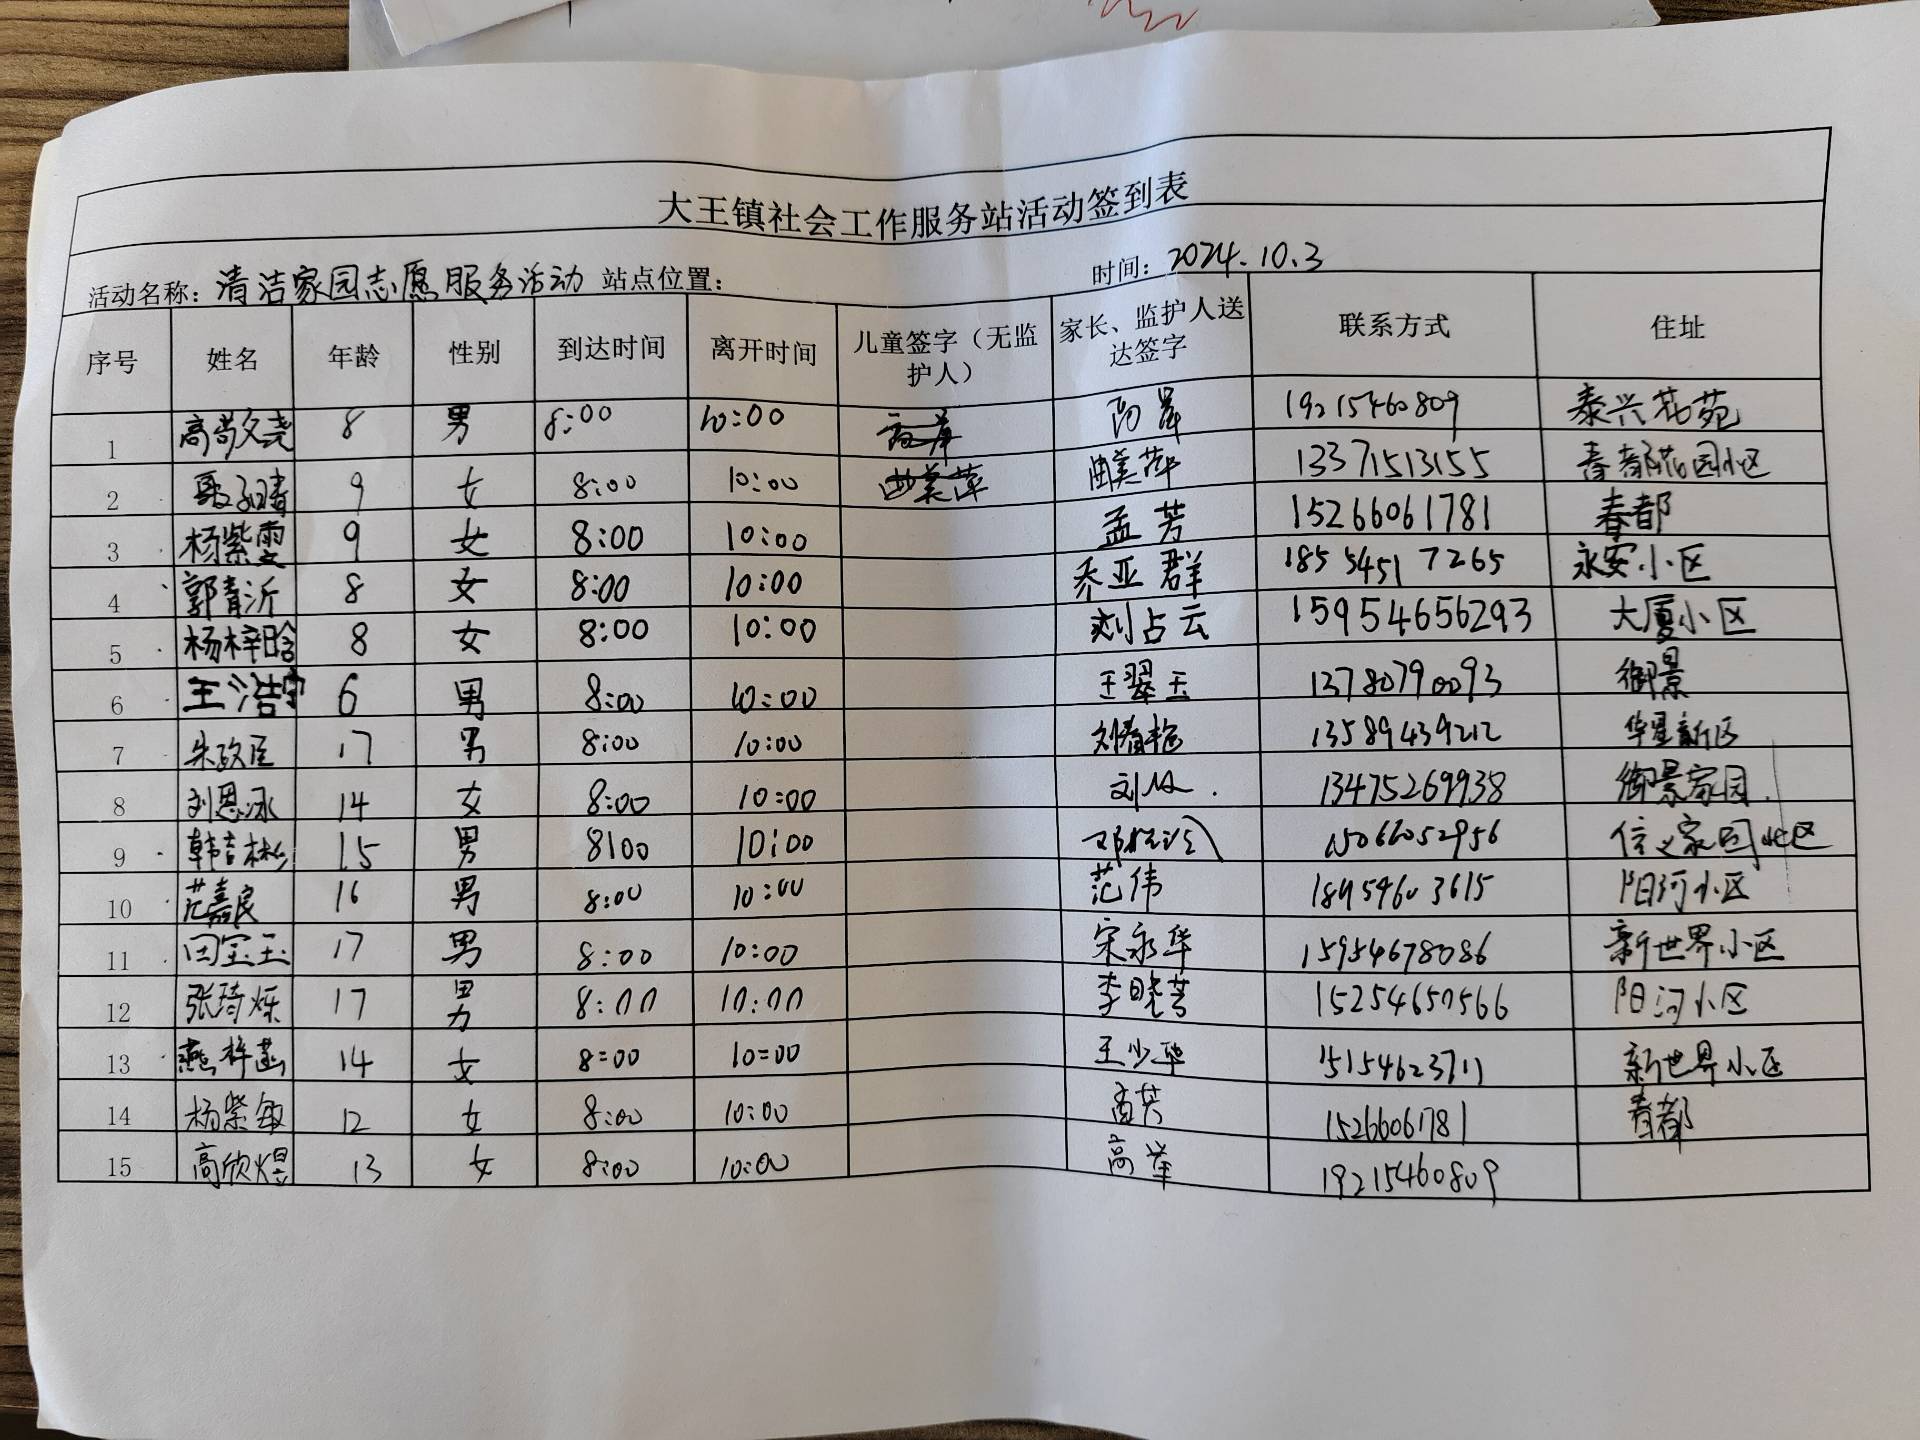 大王镇社会工作服务站活动签到表
活动名称：清洁家园志愿服务活动 站点位置： 时间：2024.10.3
序号 姓名 年龄 性别 到达时间 离开时间 儿童签字（无监护人） 家长、监护人送达签字 联系方式 住址
1 高尚文尧 8 男 8:00 10:00 19215460809 泰兴花苑
2 9 女 8:00 10:00 曲美萍 曲美萍 13371513155 春都花园小区
3 杨紫雯 9 女 8:00 10:00 孟芳 15266061781 春都
4 郭青沂 8 女 8:00 10:00 乔亚群 18554517265 永安小区
5 杨梓晗 8 女 8:00 10:00 刘占云 15954656293 大厦小区
6 王浩宇 6 男 8:00 10:00 王翠玉 13780790093 御景
7 17 男 8:00 10:00 刘春艳 13589439212 华星新区
8 刘恩冰 14 女 8:00 10:00 13475269938 御景家园
9 韩吉彬 15 男 8:00 10:00 15066052956 信义家园北区
10 范嘉良 16 男 8:00 10:00 范伟 18954603615 阳河小区
11 田宝玉 17 男 8:00 10:00 宋永华 15954678086 新世界小区
12 张琦烁 17 男 8:00 10:00 李晓芳 15254657566 阳河小区
13 燕梓菡 14 女 8:00 10:00 王少华 15154623711 新世界小区
14 杨紫敏 12 女 8:00 10:00 孟芳 15266061781 春都
15 高欣煜 13 女 8:00 10:00 高岸 19215460809